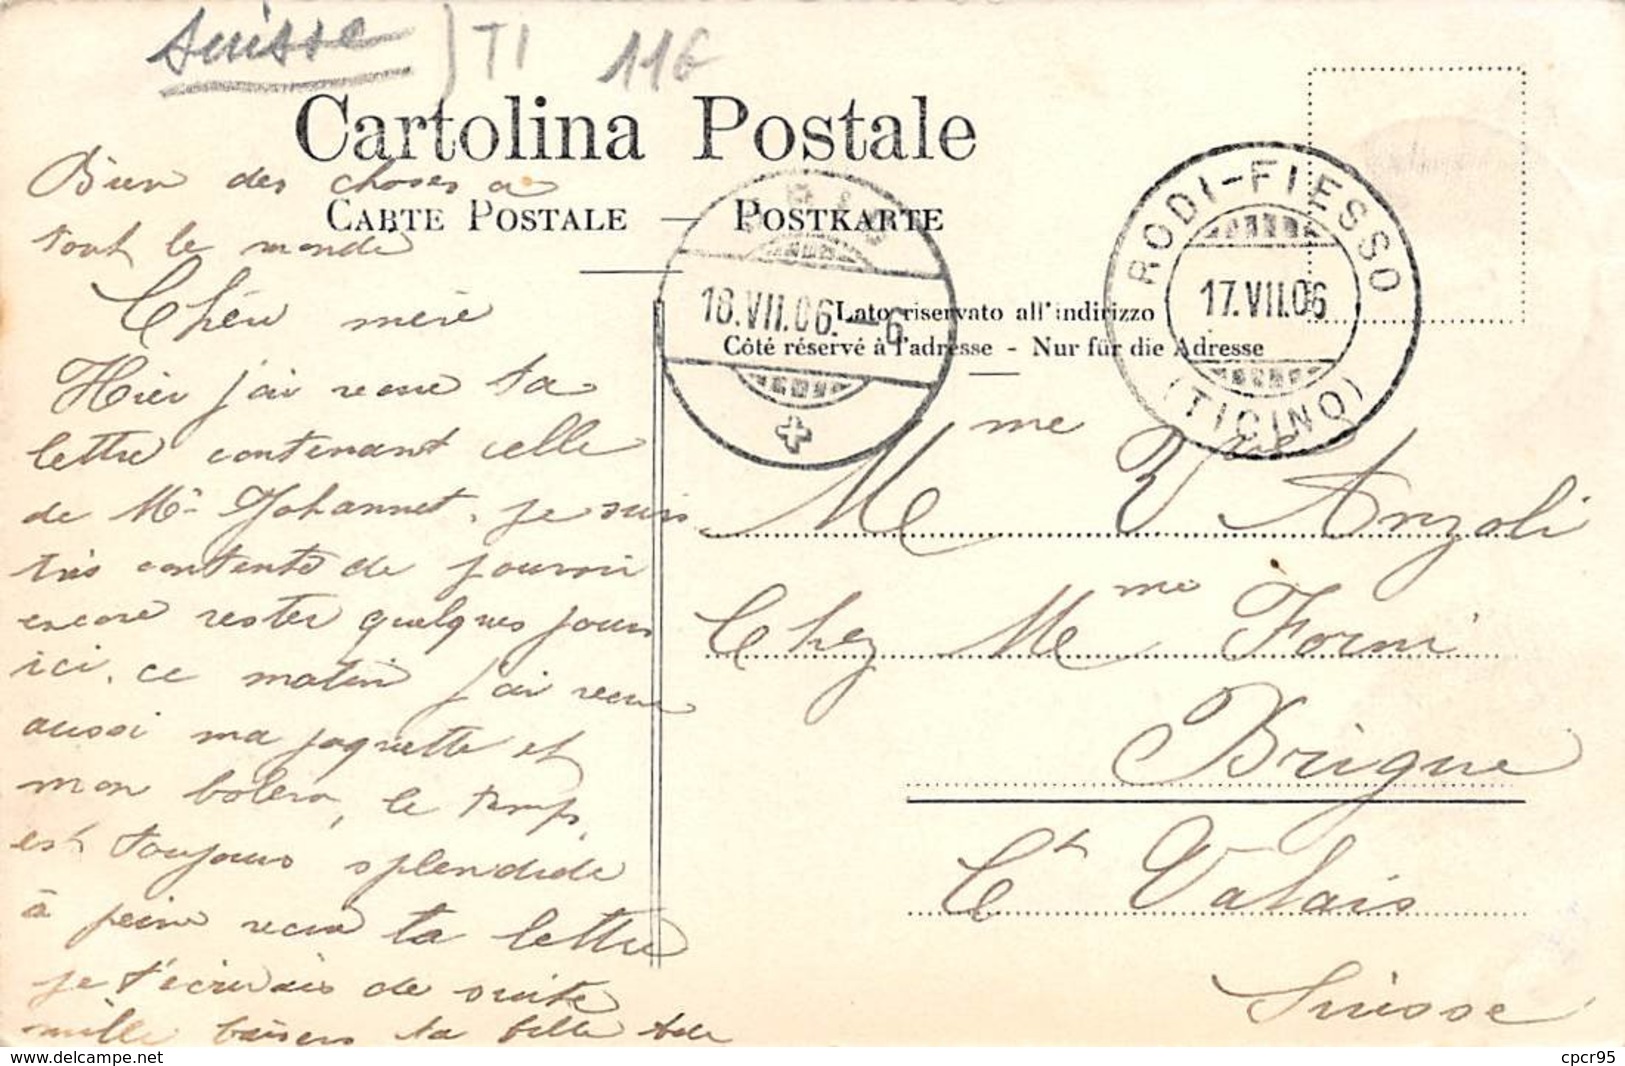 Suisse ) TI 116
Cartolina Postale
CARTE POSTALE — POSTKARTE
Lato riservato all'indirizzo
Côté réservé à l'adresse - Nur für die Adresse
18.VII.06.-6
RODI-FIESSO
17.VII.06
(TICINO)
Bien des choses a
tout le monde
Chère mère
Hier j'ai recue ta
lettre contenant celle
de Mr Johannet, je suis
très contente de pouvoir
encore rester quelques jours
ici, ce matin j'ai recue
aussi ma jaquette et
mon bolero, le temps
est toujours splendide
à peine recue ta lettre
je t'écrivais de suite
mille baisers ta fille
Mme Vve Anzoli
Chez Mme Forni
Brigue
Ct Valais
Suisse
cpc-france.com
cpcr95